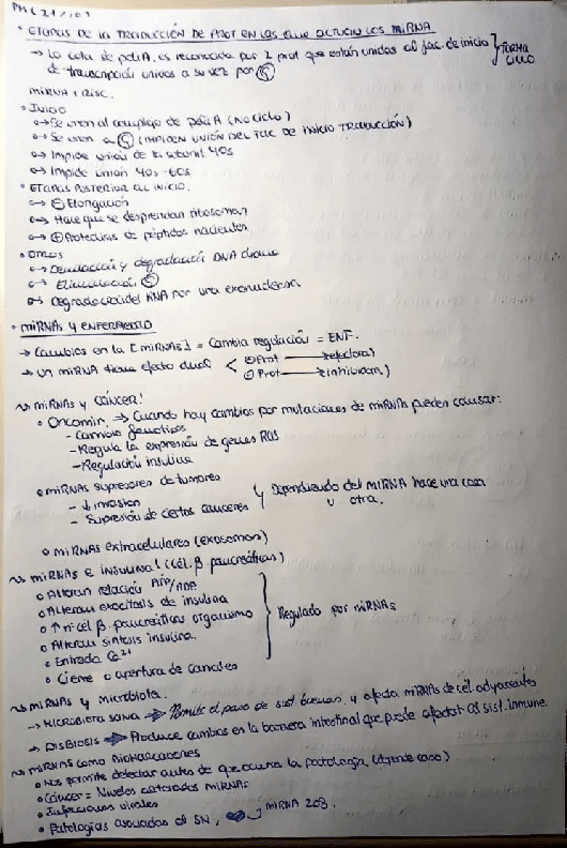 • ETAPAS DE LA TRADUCCIÓN DE PROT EN LAS QUE ACTÚAN LOS MIRNA
→ La cola de poli A es reconocida por 2 prot que están unidas al fac. de inicio } FORMA CICLO
de transcripción unidos a su vez por
miRNA + RISC.
• INICIO
→ Se unen al complejo de poli A (NO ciclo)
→ Se unen a (IMPIDEN UNIÓN DEL FAC DE INICIO TRADUCCIÓN)
→ Impide unión de la subunit 40s
→ Impide unión 40s-60s
• ETAPAS POSTERIOR AL INICIO.
→ ⊖ Elongación
→ Hace que se desprendan ribosomas
→ ⊕ Proteólisis de péptidos nacientes
• OTROS
→ y degradación DNA
→ Eliminación
→ Degradación del RNA por una exonucleasa
• miRNAs y ENFERMEDAD
→ Cambios en la [miRNAs] = Cambia regulación = ENF.
→ Un miRNA tiene efecto dual < Prot → efectoras
Prot → inhibidoras
miRNAs y CÁNCER!
• Oncomir. ⇒ Cuando hay cambios por mutaciones de miRNAs pueden causar:
- Cambio fenotipos
- Regula la expresión de genes RAS
- Regulación insulina
• miRNAs supresores de tumores
- ↓ invasión
- Supresión de ciertos canceres } Dependiendo del MIRNA hace una cosa
u otra.
• miRNAs extracelulares (exosomas)
miRNAs e INSULINA! (Cél. β pancreáticas)
• Alteran relación ATP/ADP
• Alteran exocitosis de insulina
• ↑ nº cél β pancreáticas organismo } Regulado por miRNAs
• Alteran síntesis insulina.
• Entrada Ca²⁺
• Cierre o apertura de canales
miRNAs y Microbiota.
→ MICROBIOTA SANA ⇒ Permite el paso de sust buenas y afecta miRNAs de cél. adyacentes
→ DISBIOSIS ⇒ Produce cambios en la barrera intestinal que puede afectar al sist. inmune
miRNAs como BIOMARCADORES
• Nos permite detectar antes de que ocurra la patología (depende caso)
• Cáncer = Niveles alterados miRNAs
• Infecciones virales
• Patologías asociadas al SN, miRNA 203.